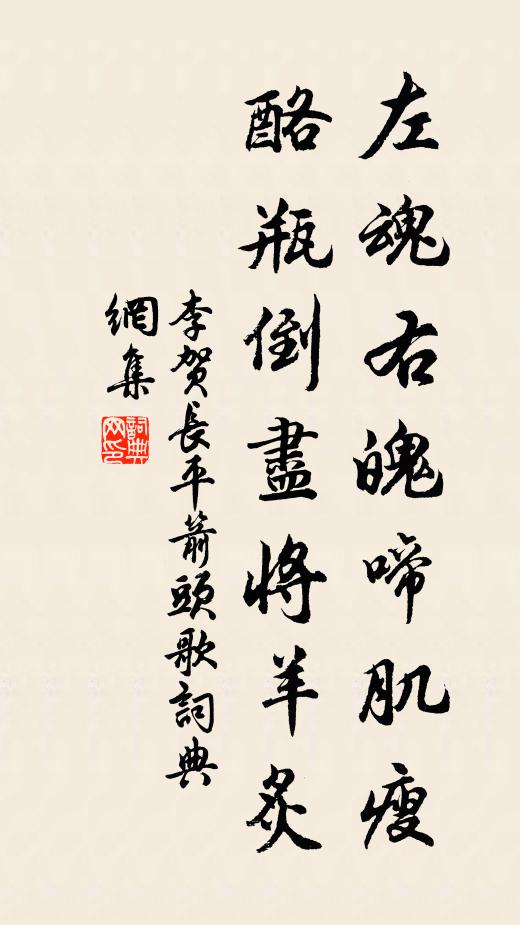 左魂右魄啼肌瘦
酪瓶倒盡將羊炙
李賀長平箭頭歌詞典
網集
詞典
网印